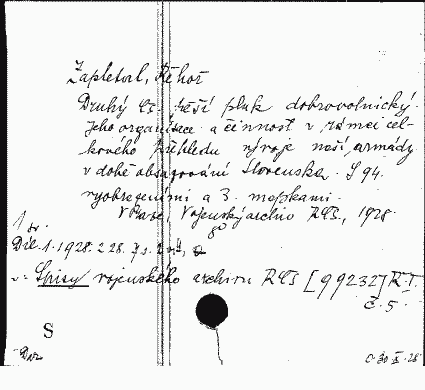 Zapletal, Řehoř
Druhý čs. pěší pluk dobrovolnický.
Jeho organisace a činnost v rámci cel-
kového přehledu vývoje naší armády
v době obsazování Slovenska. S 94.
vyobrazeními a 3. mapkami.
V Praze, Vojenský archiv RČS., 1928.
8°
1 sv.
Díl 1. 1928. 228.
Spisy vojenského archivu RČS [99232] R.I.
č. 5.
S
Dar
C. 30 X. 28